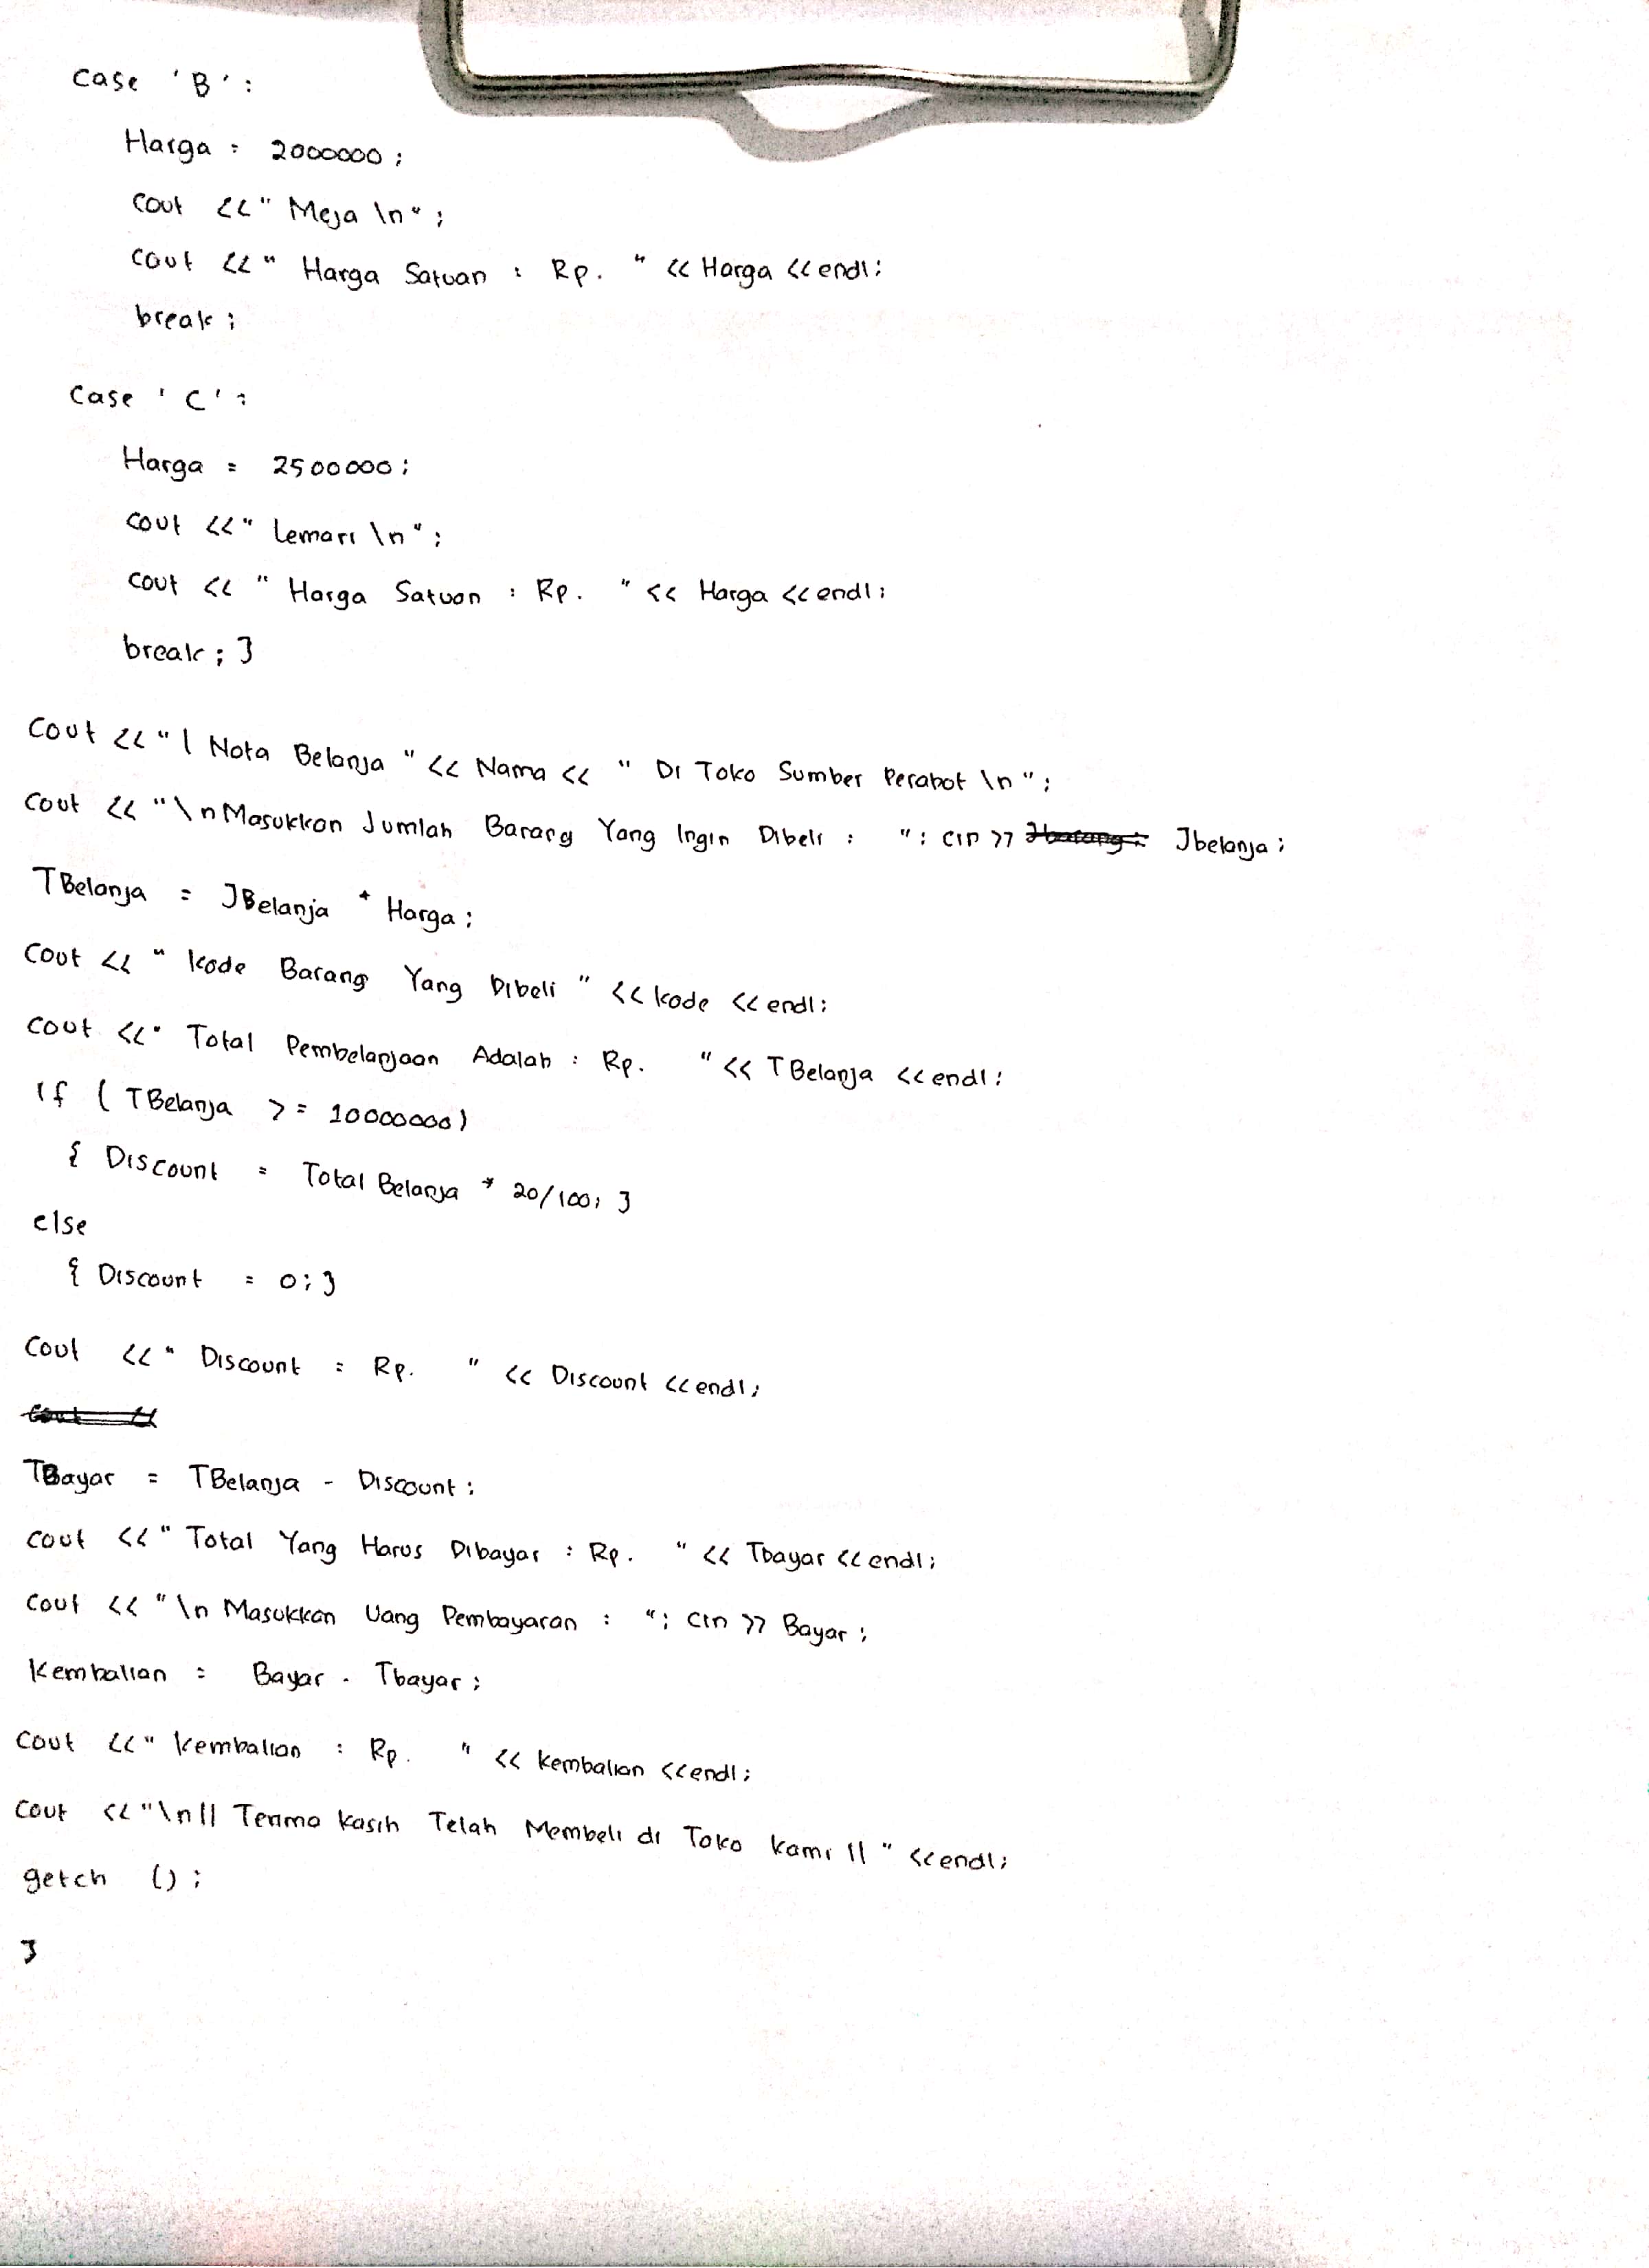 case 'B':
Harga = 2000000;
cout <<" Meja \n";
cout <<" Harga Satuan : Rp. " << Harga <<endl;
break;
case 'C':
Harga = 2500000;
cout <<" Lemari \n";
cout << " Harga Satuan : Rp. " << Harga <<endl;
break; }
Cout <<" | Nota Belanja " << Nama << " Di Toko Sumber Perabot \n";
Cout << "\nMasukkan Jumlah Barang Yang Ingin Dibeli : "; cin >> Jbelanja;
TBelanja = JBelanja * Harga;
Cout << " Kode Barang Yang Dibeli " << kode << endl;
Cout <<" Total Pembelanjaan Adalah : Rp. " << TBelanja <<endl;
If ( TBelanja >= 10000000)
{ Discount = Total Belanja * 20/100; }
else
{ Discount = 0; }
Cout <<" Discount : Rp. " << Discount <<endl;
TBayar = TBelanja - Discount;
cout <<" Total Yang Harus Dibayar : Rp. " << Tbayar <<endl;
Cout << "\n Masukkan Uang Pembayaran : "; cin >> Bayar;
Kembalian = Bayar - Tbayar;
Cout <<" Kembalian : Rp. " << Kembalian <<endl;
Cout <<"\n|| Terima Kasih Telah Membeli di Toko Kami || " <<endl;
getch ();
}